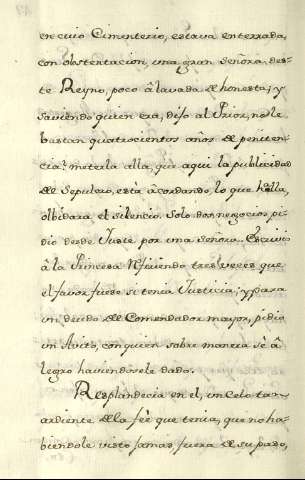 en cuio Cimenterio, estava enterrada,
con obstentacion, una gran señora, des-
te Reyno, poco âlavada de honesta; y
saviendo quien era, dijo al Prior, no le
bastan quatrocientos años de peniten
cia? meterla alla, qui aqui la publicidad
del Sepulcro, esta âcordando, lo que halla,
olbidara el silencio. Solo dos negocios pi-
dio desde Juste por una señora. Escrivio
â la Princesa tres veces que
el favor fuese si tenia Justicia; y para
un deudo del Comendador mayor, pidio
un Avito, con quien sobre manera sê â
legro haviendosele dado.
Resplandecia en el, un Celo tan
ardiente de la feê que tenia, que no ha-
biendole visto Jamas fuera de su paso,